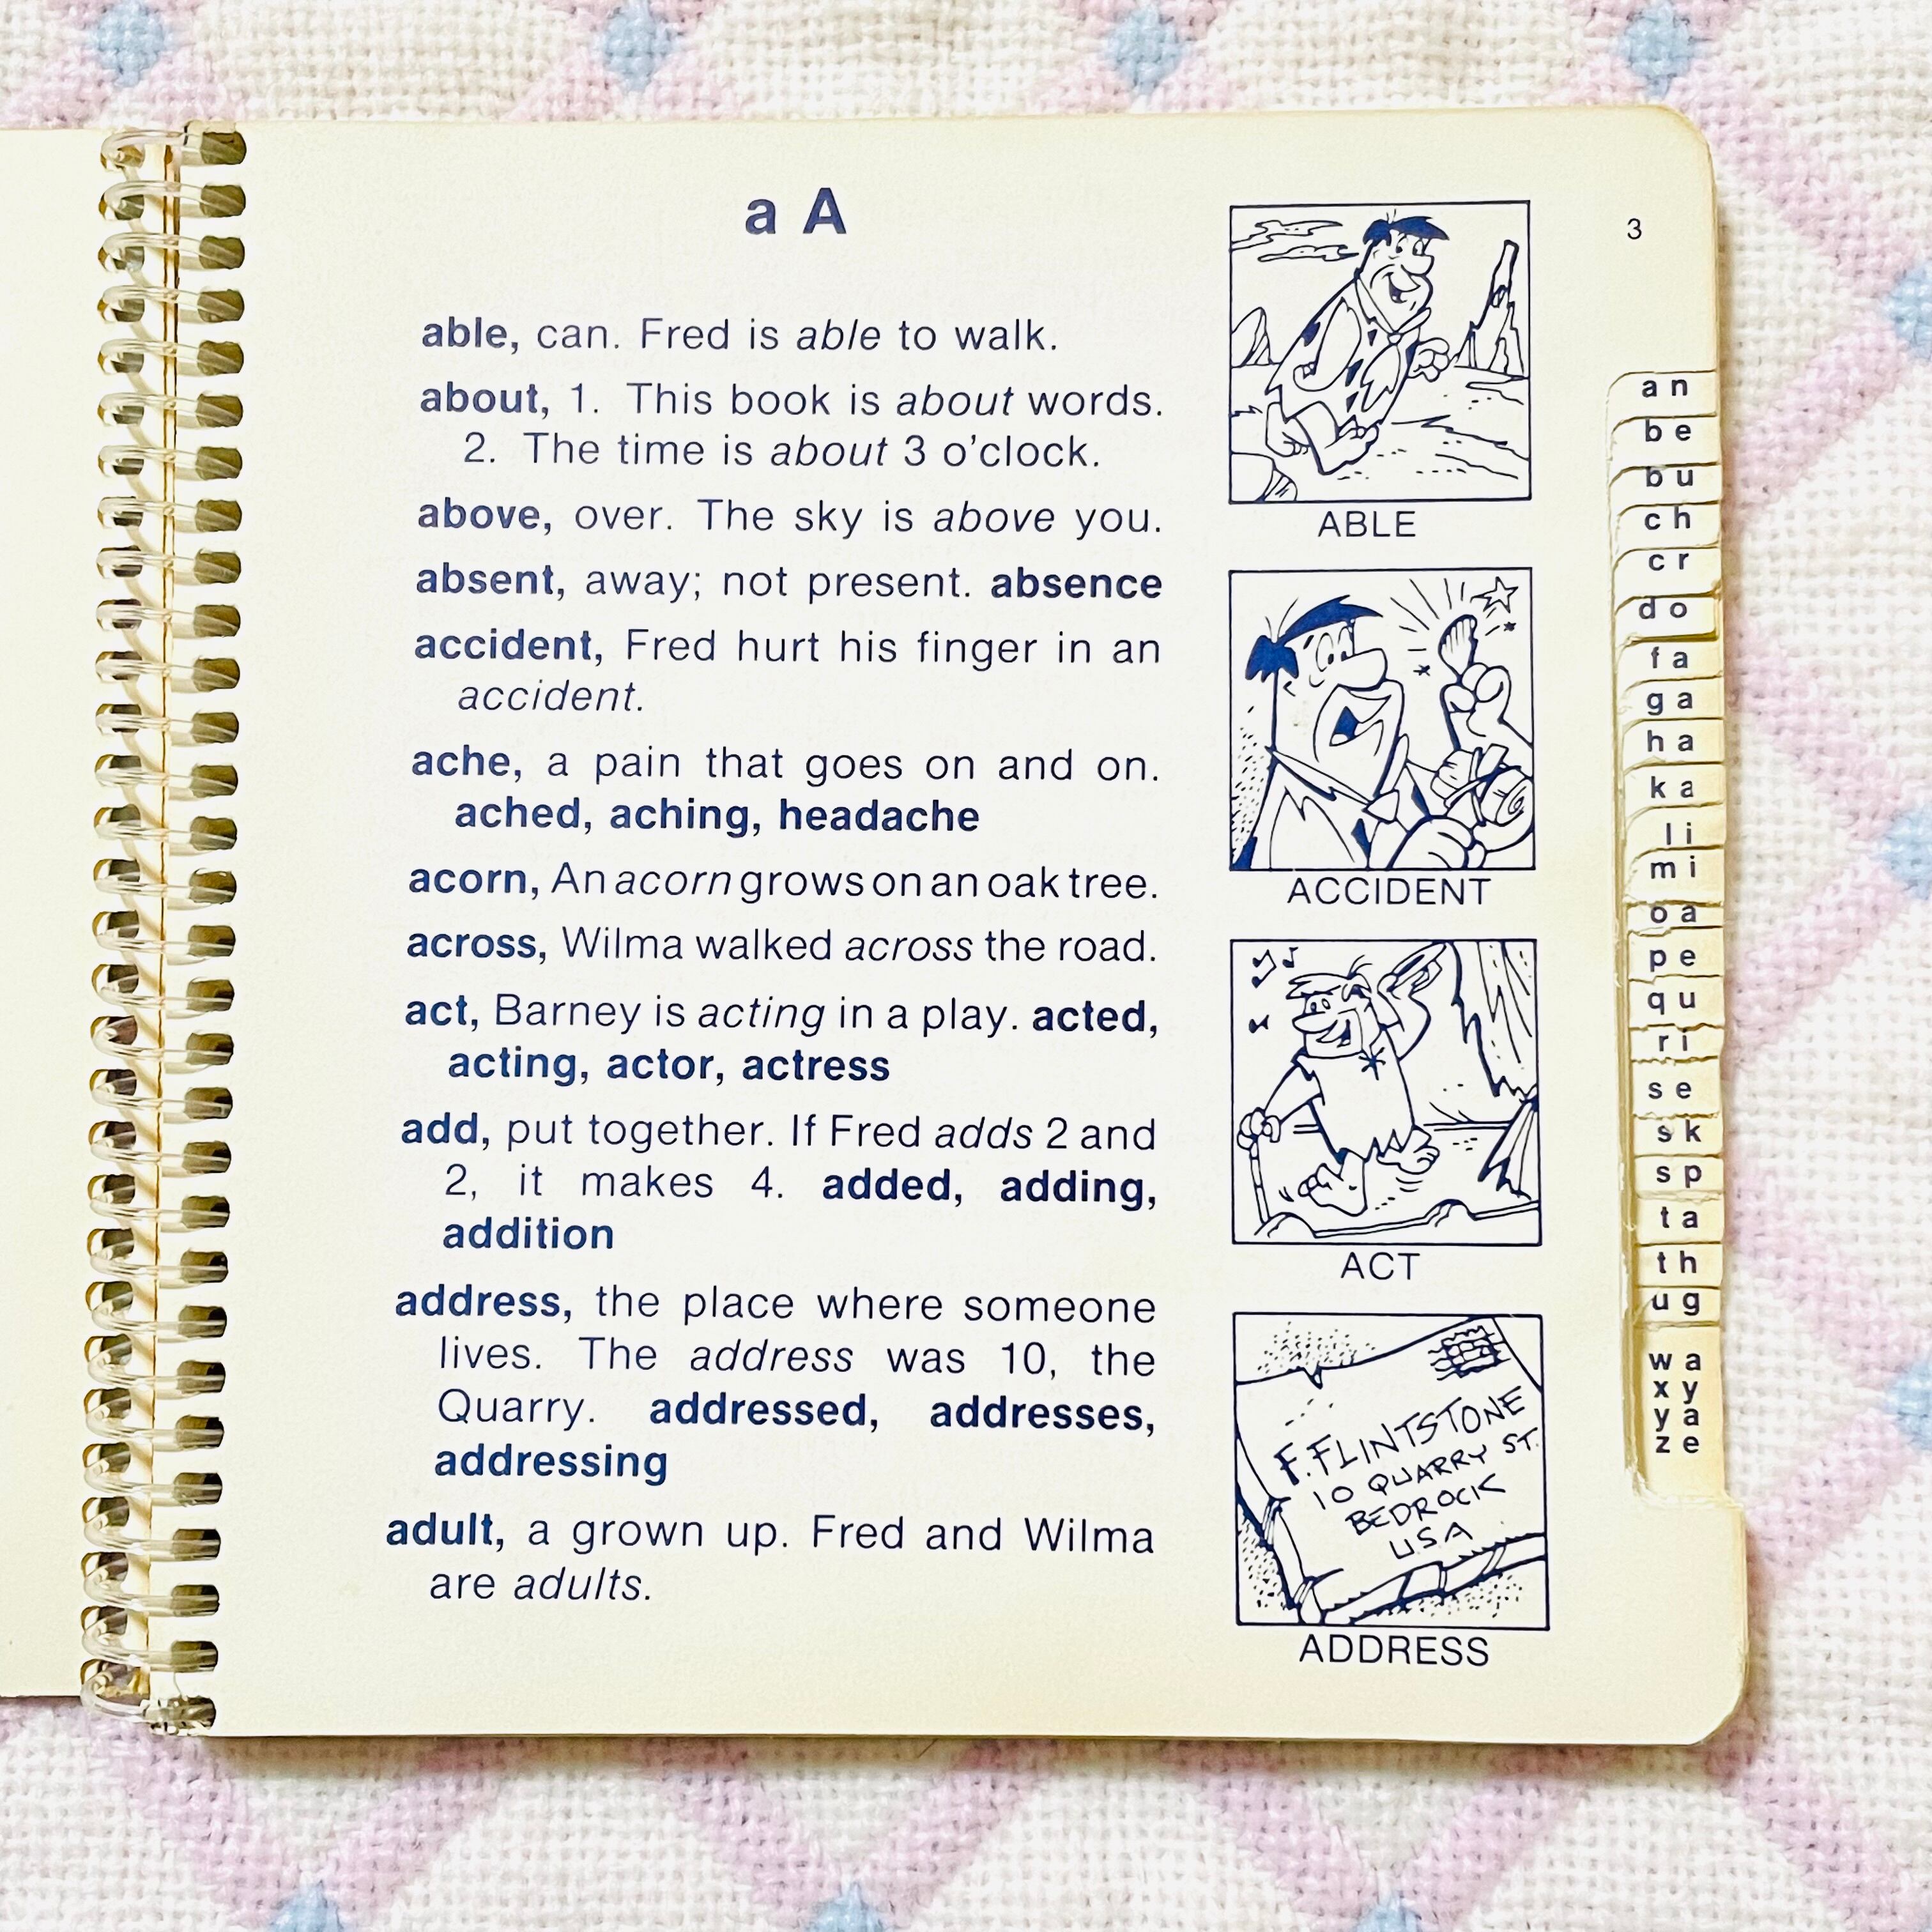 a A
3
able, can. Fred is able to walk.
about, 1. This book is about words.
2. The time is about 3 o'clock.
above, over. The sky is above you.
absent, away; not present. absence
accident, Fred hurt his finger in an
accident.
ache, a pain that goes on and on.
ached, aching, headache
acorn, An acorn grows on an oak tree.
across, Wilma walked across the road.
act, Barney is acting in a play. acted,
acting, actor, actress
add, put together. If Fred adds 2 and
2, it makes 4. added, adding,
addition
address, the place where someone
lives. The address was 10, the
Quarry. addressed, addresses,
addressing
adult, a grown up. Fred and Wilma
are adults.
ABLE
ACCIDENT
ACT
F. FLINTSTONE
10 QUARRY ST.
BEDROCK
USA
ADDRESS
an
be
bu
ch
cr
do
fa
ga
ha
ka
li
mi
oa
pe
qu
ri
se
sk
sp
ta
th
ug
wa
xy
ya
ze